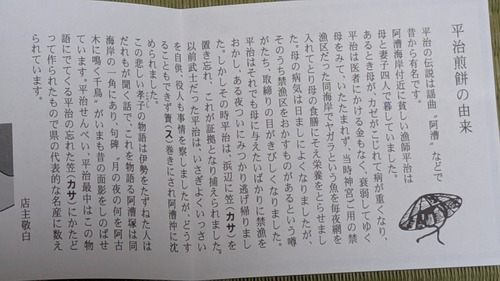 平治煎餅の由来
平治の伝説は謡曲〝阿漕〟などで
昔から有名です。
阿漕海岸付近に貧しい漁師平治は
母と妻子四人で暮していました。
あるとき母が、カゼがこじれて病が重くなり、
平治は医者にかける金もなく、衰弱してゆく
母をみて、いたたまれず、当時神宮ご用の禁
漁区だった同海岸でヤガラという魚を毎夜網を
入れてとり母の食膳にそえ栄養をとらせまし
た。母の病気は日ましによくなりましたが、
そのうち禁漁区をおかすものがあるという噂
がたち、取締りの目がきびしくなりました。
平治はそれでも母に与えたいばかりに禁漁を
おかし、ある夜ついにみつかり逃げ帰りまし
た。しかしその時平治は、浜辺に笠(カサ)を
置き忘れ、これが証拠となり捕えられました。
以前武士だった平治は、いさぎよくいっさい
を自供、役人も事情を察しましたが、どうす
ることもできず簀(ス)巻きにされ阿漕沖に沈
められました。
この悲しい孝子の物語は伊勢をたずねた人は
だれもが聞く話で、これを物語る阿漕塚は同
海岸の一角にあり、句碑〝月の夜の何を阿古
木に鳴く千鳥〟がいまも昔の面影をしのばせ
ています。平治せんべい、平治最中はこの物
語にでてくる平治の忘れた笠(カサ)にかたど
って作られたもので県の代表的な名産に数え
られています。
店主敬白